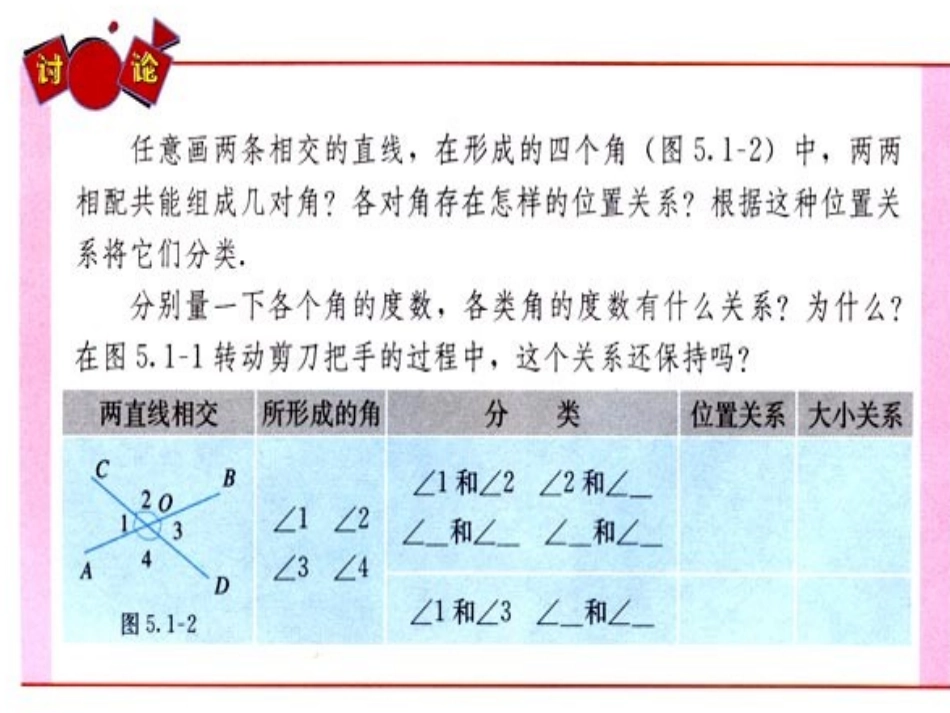 讨论
任意画两条相交的直线，在形成的四个角（图 5.1-2）中，两两
相配共能组成几对角？各对角存在怎样的位置关系？根据这种位置关
系将它们分类.
分别量一下各个角的度数，各类角的度数有什么关系？为什么？
在图 5.1-1 转动剪刀把手的过程中，这个关系还保持吗？
两直线相交 所形成的角 分 类 位置关系 大小关系
C
B
2 O
1 3
4
A
D
图 5.1-2
∠1 ∠2
∠3 ∠4
∠1 和∠2 ∠2 和∠__
∠__和∠__ ∠__和∠__
∠1 和∠3 ∠__和∠__